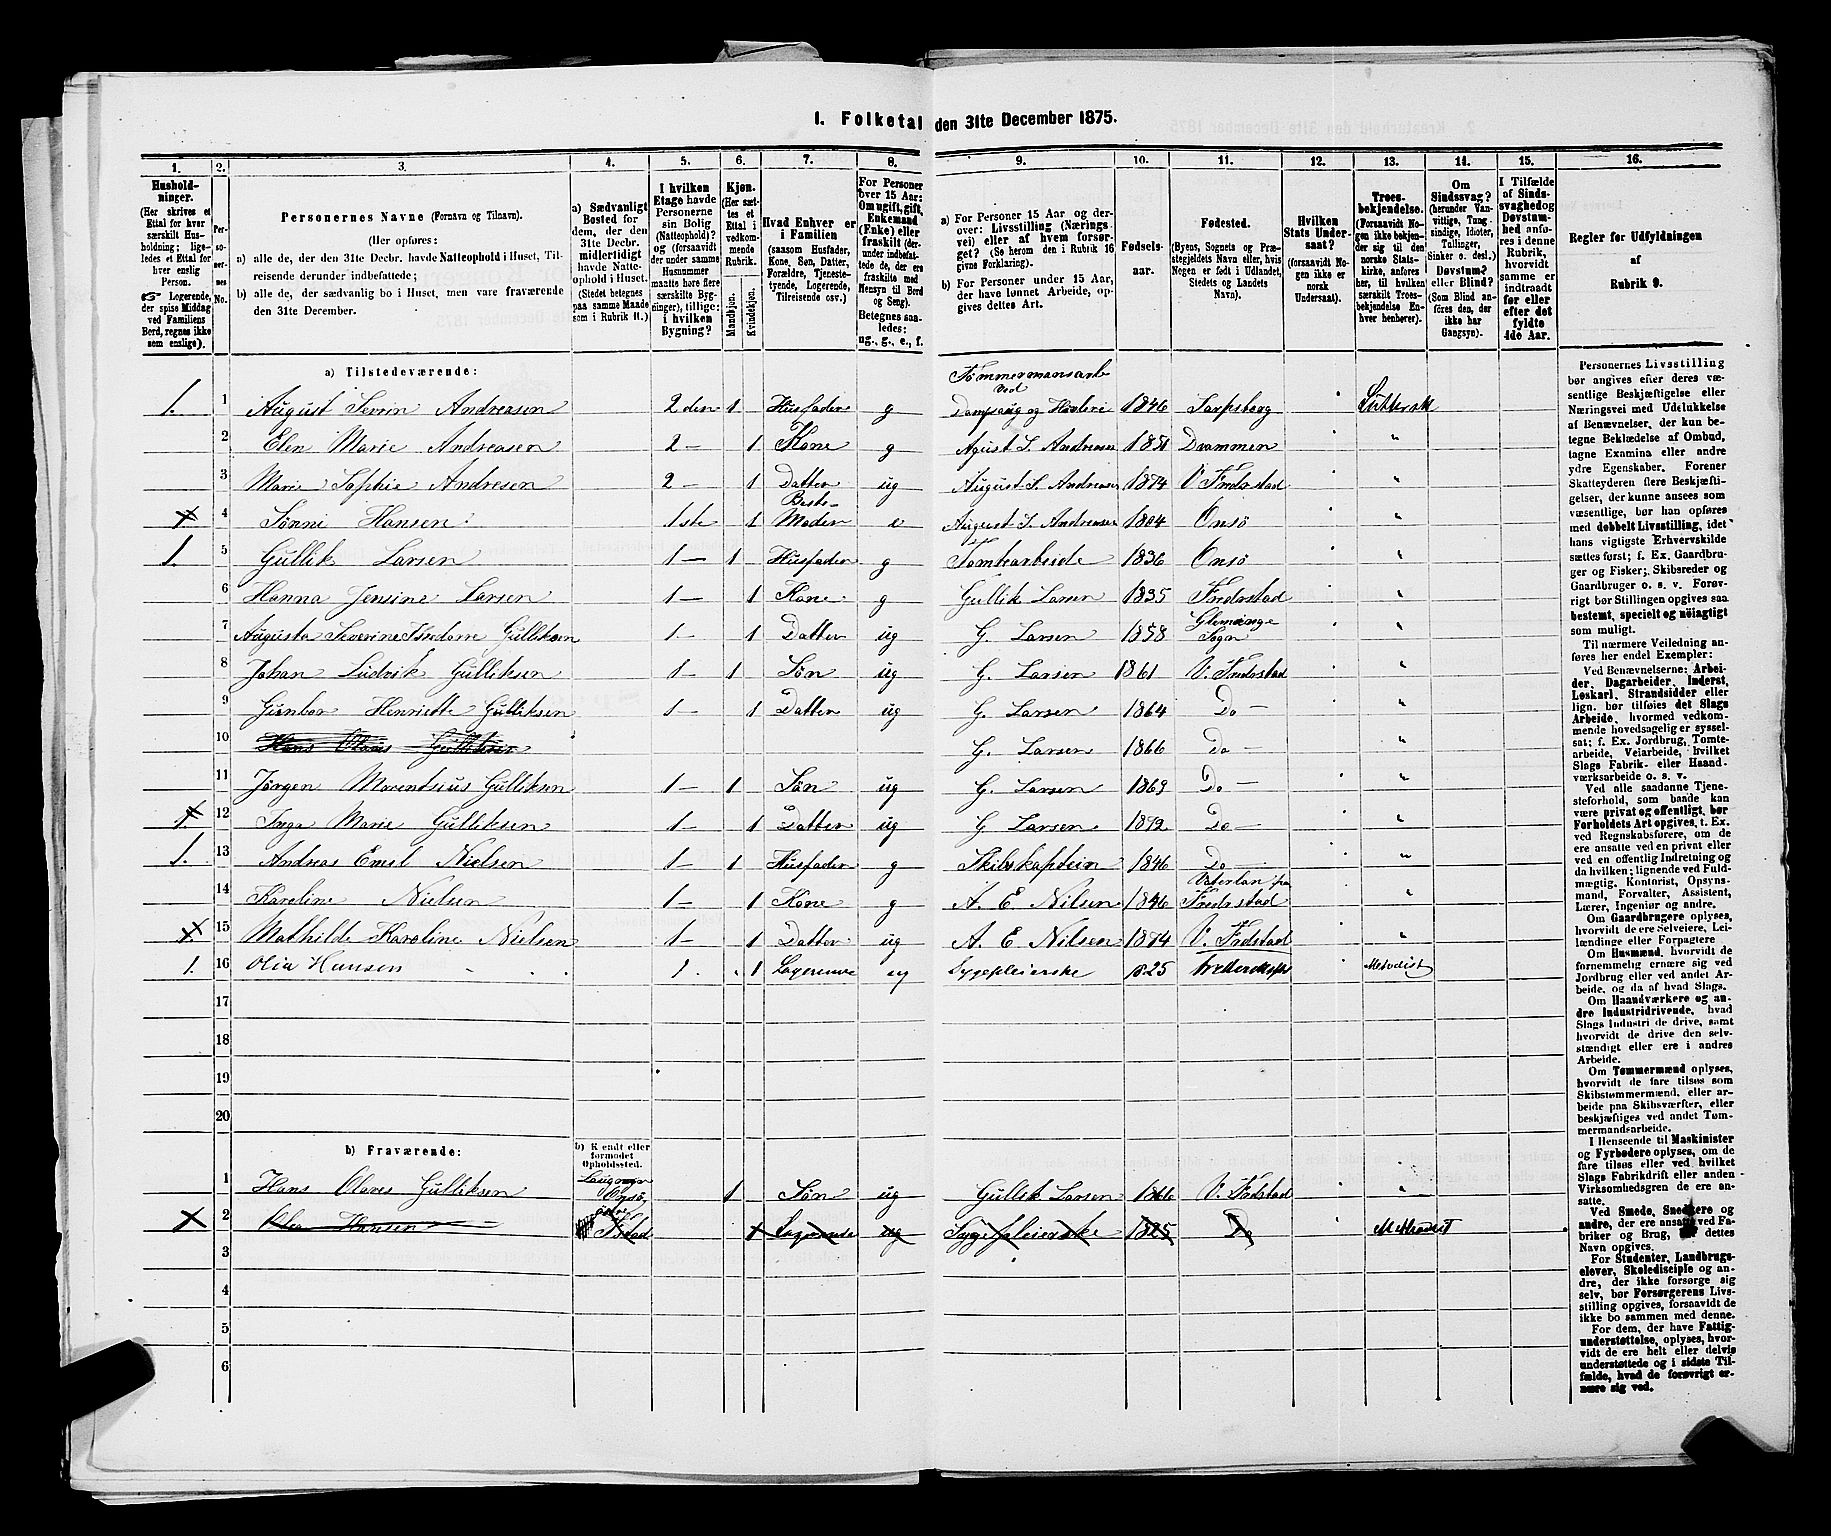 1. Folketal den 31te December 1875.
1. 2. 3. 4. 5. 6. 7. 8. 9. 10. 11. 12. 13. 14. 15. 16.
Husholdninger. (Her skrives et Ettal for hver særskilt Husholdning; ligeledes et Ettal for hver enslig Person. Logerende, der spise Middag ved Familiens Bord, regnes ikke som enslige).
Personernes No.
Personernes Navne (Fornavn og Tilnavn).
(Her opføres:
a) alle de, der den 31te Decbr. havde Natteophold i Huset, Tilreisende derunder indbefattede;
b) alle de, der sædvanlig bo i Huset, men vare fraværende den 31te December.
a) Sædvanligt Bosted for dem, der den 31te Decbr. midlertidigt havde Natteophold i Huset. (Stedet betegnes paa samme Maade som i Rubrik 11.)
I hvilken Etage havde Personerne sin Bolig (Natteophold)? og (forsaavidt der under samme Husnummer maatte høre flere særskilte Bygninger), tillige: i hvilken Bygning?
Kjøn. (Her sættes et Ettal i vedkommende Rubrik. Mandkjøn. Kvindekjøn.
Hvad Enhver er i Familien (saasom Husfader, Kone, Søn, Datter, Forældre, Tjenestetyende, Logerende, Tilreisende osv.)
For Personer over 15 Aar: Om ugift, gift, Enkemand (Enke) eller fraskilt (derunder indbefattede de, der ere fraskilte med Hensyn til Bord og Seng). Betegnes saaledes: ug., g., e., f.
a) For Personer 15 Aar og derover: Livsstilling (Næringsvei) eller af hvem forsørget? (Se herom den i Rubrik 16 givne Forklaring).
b) For Personer under 15 Aar, der have lønnet Arbeide, opgives dettes Art.
Fødselsaar.
Fødested. (Byens, Sognets og Præstegjeldets Navn eller, hvis Nogen er født i Udlandet, Stedets og Landets Navn).
Hvilken Stats Undersaat? (forsaavidt Nogen ikke er norsk Undersaat).
Troesbekjendelse. (Forsaavidt Nogen ikke bekjender sig til den norske Statskirke, anføres her, til hvilken særskilt Troesbekjendelse Enhver henhører).
Om Sindssvag? (herunder Vanvittige, Tungsindige, Idioter, Tullinger, Sinker o. desl.) Døvstum? eller Blind? (Som Blind anføres den, der ikke har Gangsyn).
I Tilfælde af Sindssvaghed og Døvstumhed anføres i denne Rubrik, hvorvidt samme er indtraadt før eller efter det fyldte 4de Aar.
Regler for Udfyldningen af Rubrik 9.
a) Tilstedeværende:
1. 1 August Sevrin Andreasen 2den 1 Husfader g Tømmermansarb ved Dampsaug og Høvleri 1846 Sarpsborg Luttersk
2 Elen Marie Andreasen 2 — 1 Kone g Agust S. Andreasen 1851 Drammen "
3 Marie Sophie Andresen 2 — 1 Datter ug August S. Andreasen 1874 V. Fredrstad "
4 Sønni Hansen 1ste 1 Beste-Moder e August S. Andreasen 1804 Onsø "
1. 5 Gullik Larsen 1 — 1 Husfader g Tomtearbeide 1836 Onsø "
6 Hanna Jensine Larsen 1 — 1 Kone g Gullik Larsen 1835 Fredrstad "
7 Augusta Severine Gulliksen 1 — 1 Datter ug G. Larsen 1858 Glemminge Sogn "
8 Johan Ludvik Gulliksen 1 — 1 Søn ug G. Larsen 1861 V. Fredrstad "
9 Gunbor Henriette Gulliksen 1 — 1 Datter ug G. Larsen 1864 Do — "
10 Hans Olaves Gulliksen G. Larsen 1866 Do — "
11 Jørgen Marentsius Gulliksen 1 — 1 Søn ug G. Larsen 1869 Do — "
1. 12 Inga Marie Gulliksen 1 — 1 Datter ug G. Larsen 1872 Do — "
1. 13 Andreas Emil Nielsen 1 — 1 Husfader g Skibskaptein 1846 Do — "
14 Karoline Nielsen 1 — 1 Kone g A. E. Nilsen 1846 Vaterlan fra Fredrstad "
1. 15 Mathilde Karoline Nielsen 1 — 1 Datter ug A. E. Nilsen 1874 V. Fredstad "
1. 16 Olia Hansen 1. 1 Logerende ug Sygepleierske 1825 Metodist
17
18
19
20
b) Fraværende:
b) Kjendt eller formodet Opholdssted.
1 Hans Olaves Gulliksen Onsø 1 Søn ug Gullik Larsen 1866 V. Fredstad "
2 Olia Hansen Fstad 1 Logerende ug Sygepleierske 1825 Do Methodist
3
4
5
6
Personernes Livsstilling
bør angives efter deres væ-
sentlige Beskjæftigelse eller
Næringsvei med Udelukkelse
af Benævnelser, der kun be-
tegne Beklædelse af Ombud,
tagne Examina eller andre
ydre Egenskaber. Forener
Skatteyderen flere Beskjæfti-
gelser, der kunne ansees som
væsentlige, bør han opføres
med dobbelt Livsstilling, idet
hans vigtigste Erhvervskilde
sættes først; f. Ex. Gaardbru-
ger og Fisker; Skibsreder og
Gaardbruger o. s. v. Forøv-
rigt bør Stillingen opgives saa
bestemt, specielt og nøiagtigt
som muligt.
Til nærmere Veiledning an-
føres her endel Exempler:
Ved Benævnelserne: Arbei-
der, Dagarbeider, Inderst,
Løskarl, Strandsidder eller
lign. bør tilføies det Slags
Arbeide, hvormed vedkom-
mende hovedsagelig er syssel-
sat; f. Ex. Jordbrug, Tomte-
arbeide, Veiarbeide, hvilket
Slags Fabrik- eller Haand-
værksarbeide o. s. v.
Ved alle saadanne Tjene-
steforhold, som baade kan
være privat og offentligt, bør
Forholdets Art opgives, t. Ex.
ved Regnskabsførere, om de
ere ansatte ved en privat eller
ved en offentlig Indretning og
da hvilken; lignende ved Fuld-
mægtig, Kontorist, Opsyns-
mand, Forvalter, Assistent,
Lærer, Ingeniør og andre.
Om Gaardbrugere oplyses,
hvorvidt de ere Selveiere, Lei-
lændinge eller Forpagtere
Om Husmænd, hvorvidt de
fornemmelig ernære sig ved
Jordbrug eller ved andet Ar-
beide, og da af hvad Slags.
Om Haandværkere og an-
dre Industridrivende, hvad
Slags Industri de drive, samt
hvorvidt de drive den selv-
stændigt eller ere i andres
Arbeide.
Om Tømmermænd oplyses,
hvorvidt de fare tilsøs som
Skibstømmermænd, eller ar-
beide paa Skibsværfter, eller
beskjæftiges ved andet Tøm-
mermandsarbeide.
I Henseende til Maskinister
og Fyrbødere oplyses, om de
fare tilsøs eller ved hvilket
Slags Fabrikdrift eller anden
Virksomhedsgren de ere an-
satte.
Ved Smede, Snedkere og
andre, der ere ansatte ved Fa-
briker og Brug, bør dettes
Navn opgives.
For Studenter, Landbrugs-
elever, Skoledisciple og an-
dre, der ikke forsørge sig
selv, bør Forsørgerens Livs-
stilling opgives, forsaavidt de
ikke bo sammen med denne.
For dem, der have Fattig-
understøttelse, oplyses, hvor-
vidt de ere helt eller delvis
understøttede og i sidste Til-
fælde, hvad de forøvrigt er-
nære sig ved.